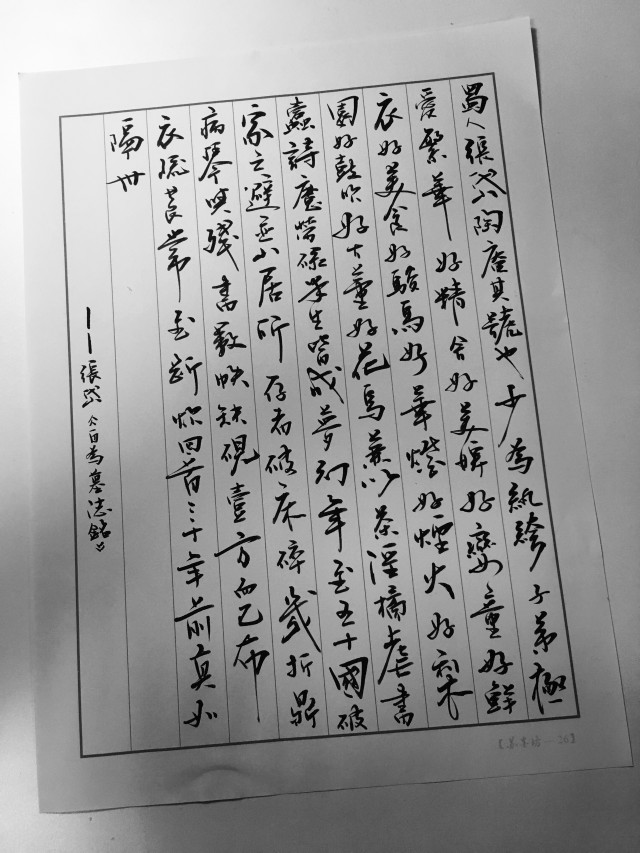 蜀人張岱陶庵其號也少為紈絝子弟極
愛繁華好精舍好美婢好孌童好鮮
衣好美食好駿馬好華燈好煙火好梨
園好鼓吹好古董好花鳥兼以茶淫橘虐書
蠹詩魔勞碌半生皆成夢幻年至五十國破
家亡避迹山居所存者破床碎幾折鼎
病琴與殘書數帙缺硯壹方而已布
衣疏莨常至斷炊回首三十年前真如
隔世
——張岱《自為墓志銘》